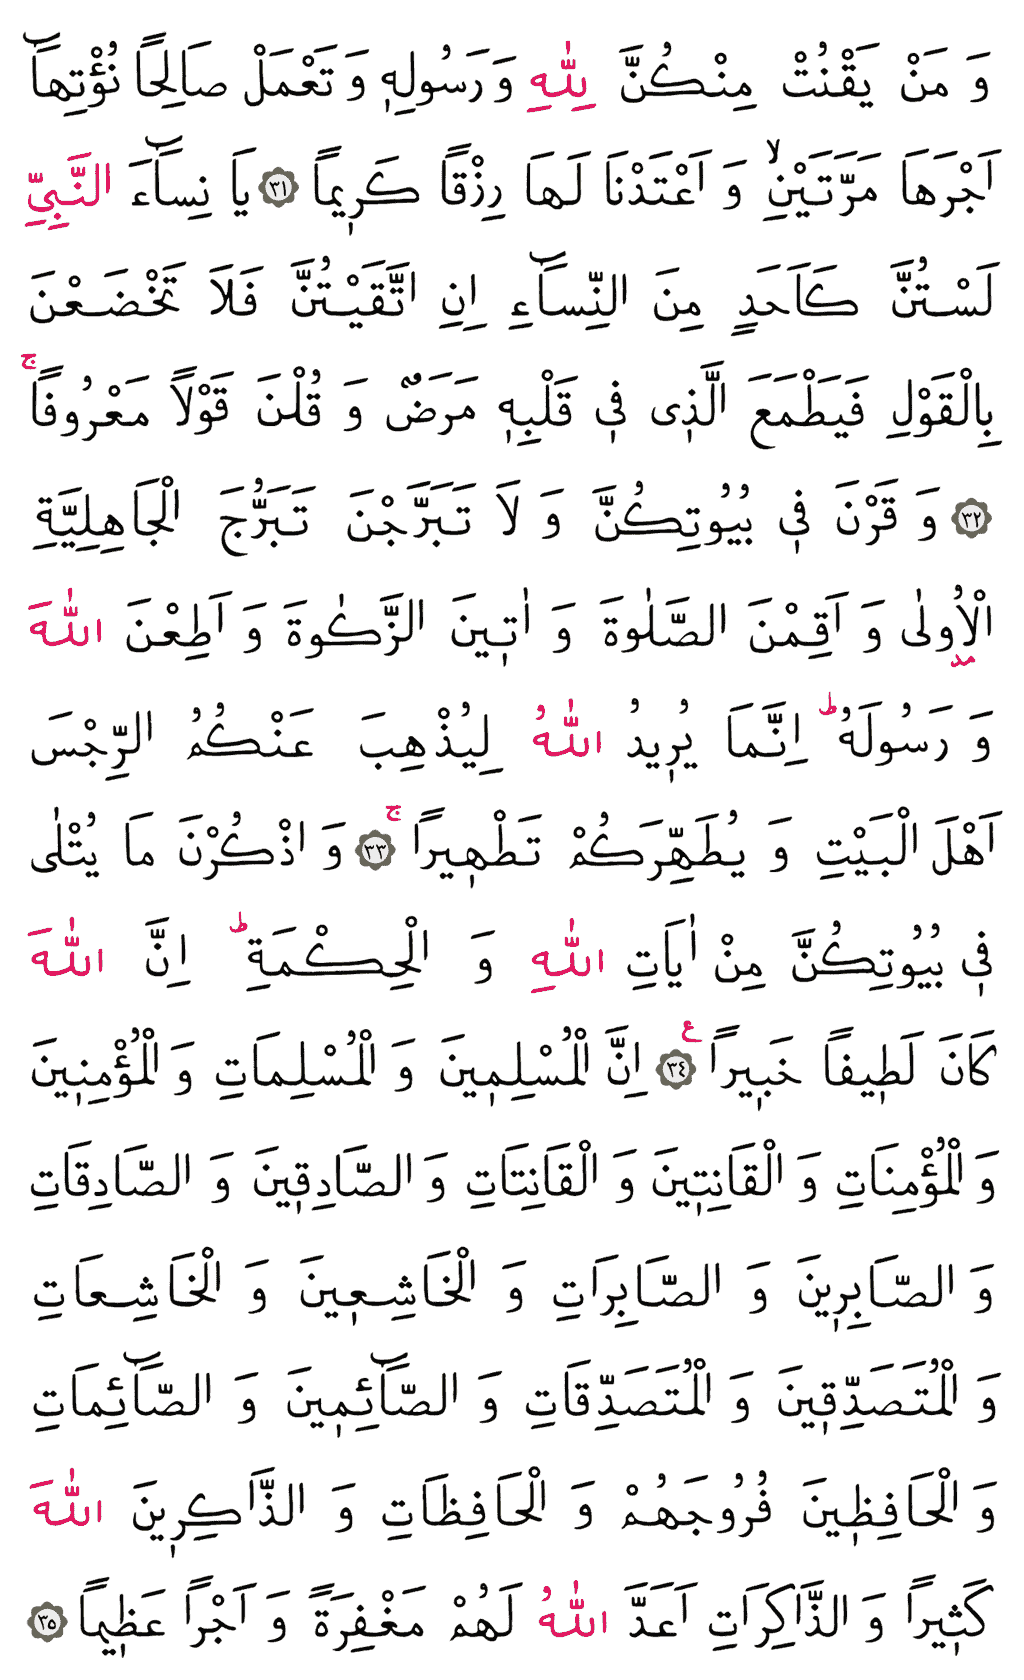 وَ مَنْ يَقْنُتْ مِنْكُنَّ لِلّٰهِ وَ رَسُولِه۪ وَ تَعْمَلْ صَالِحًا نُؤْتِهَٓا
اَجْرَهَا مَرَّتَيْنِۙ وَ اَعْتَدْنَا لَهَا رِزْقًا كَر۪يمًا ﴿٣١﴾ يَا نِسَٓاءَ النَّبِيِّ
لَسْتُنَّ كَاَحَدٍ مِنَ النِّسَٓاءِ اِنِ اتَّقَيْتُنَّ فَلَا تَخْضَعْنَ
بِالْقَوْلِ فَيَطْمَعَ الَّذ۪ى ف۪ى قَلْبِه۪ مَرَضٌ وَ قُلْنَ قَوْلًا مَعْرُوفًاۚ
﴿٣٢﴾ وَ قَرْنَ ف۪ى بُيُوتِكُنَّ وَ لَا تَبَرَّجْنَ تَبَرُّجَ الْجَاهِلِيَّةِ
الْاُولٰى وَ اَقِمْنَ الصَّلٰوةَ وَ اٰت۪ينَ الزَّكٰوةَ وَ اَطِعْنَ اللّٰهَ
وَ رَسُولَهُۜ اِنَّمَا يُر۪يدُ اللّٰهُ لِيُذْهِبَ عَنْكُمُ الرِّجْسَ
اَهْلَ الْبَيْتِ وَ يُطَهِّرَكُمْ تَطْه۪يرًاۚ ﴿٣٣﴾ وَ اذْكُرْنَ مَا يُتْلٰى
ف۪ى بُيُوتِكُنَّ مِنْ اٰيَاتِ اللّٰهِ وَ الْحِكْمَةِۜ اِنَّ اللّٰهَ
كَانَ لَط۪يفًا خَب۪يرًا ع ﴿٣٤﴾ اِنَّ الْمُسْلِم۪ينَ وَ الْمُسْلِمَاتِ وَ الْمُؤْمِن۪ينَ
وَ الْمُؤْمِنَاتِ وَ الْقَانِت۪ينَ وَ الْقَانِتَاتِ وَ الصَّادِق۪ينَ وَ الصَّادِقَاتِ
وَ الصَّابِر۪ينَ وَ الصَّابِرَاتِ وَ الْخَاشِع۪ينَ وَ الْخَاشِعَاتِ
وَ الْمُتَصَدِّق۪ينَ وَ الْمُتَصَدِّقَاتِ وَ الصَّٓائِم۪ينَ وَ الصَّٓائِمَاتِ
وَ الْحَافِظ۪ينَ فُرُوجَهُمْ وَ الْحَافِظَاتِ وَ الذَّاكِر۪ينَ اللّٰهَ
كَث۪يرًا وَ الذَّاكِرَاتِ اَعَدَّ اللّٰهُ لَهُمْ مَغْفِرَةً وَ اَجْرًا عَظ۪يمًا ﴿٣٥﴾